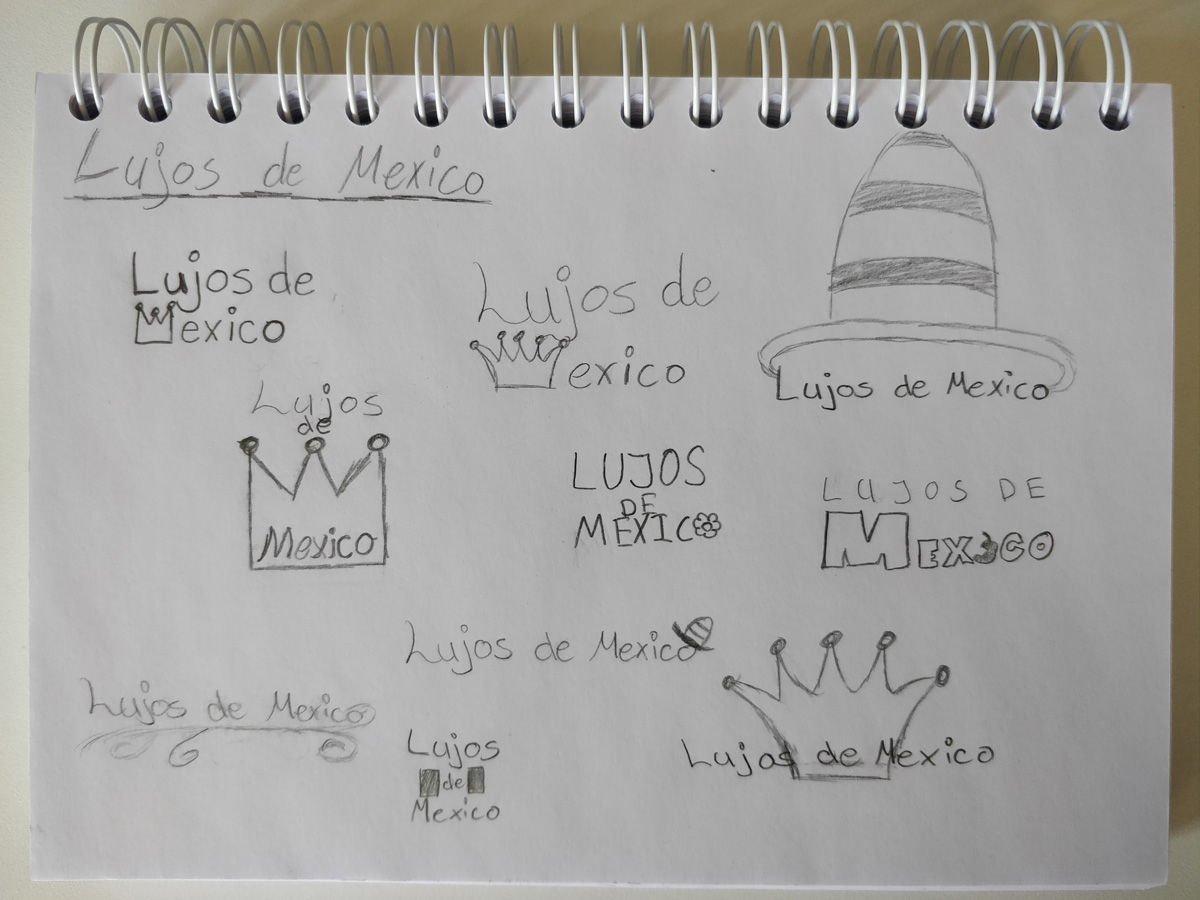 Lujos de Mexico
Lujos de
Mexico
Lujos de
Mexico
Lujos de Mexico
Lujos
de
Mexico
LUJOS
DE
MEXICO
LUJOS DE
MEXICO
Lujos de Mexico
Lujos de Mexico
Lujos
de
Mexico
Lujos de Mexico